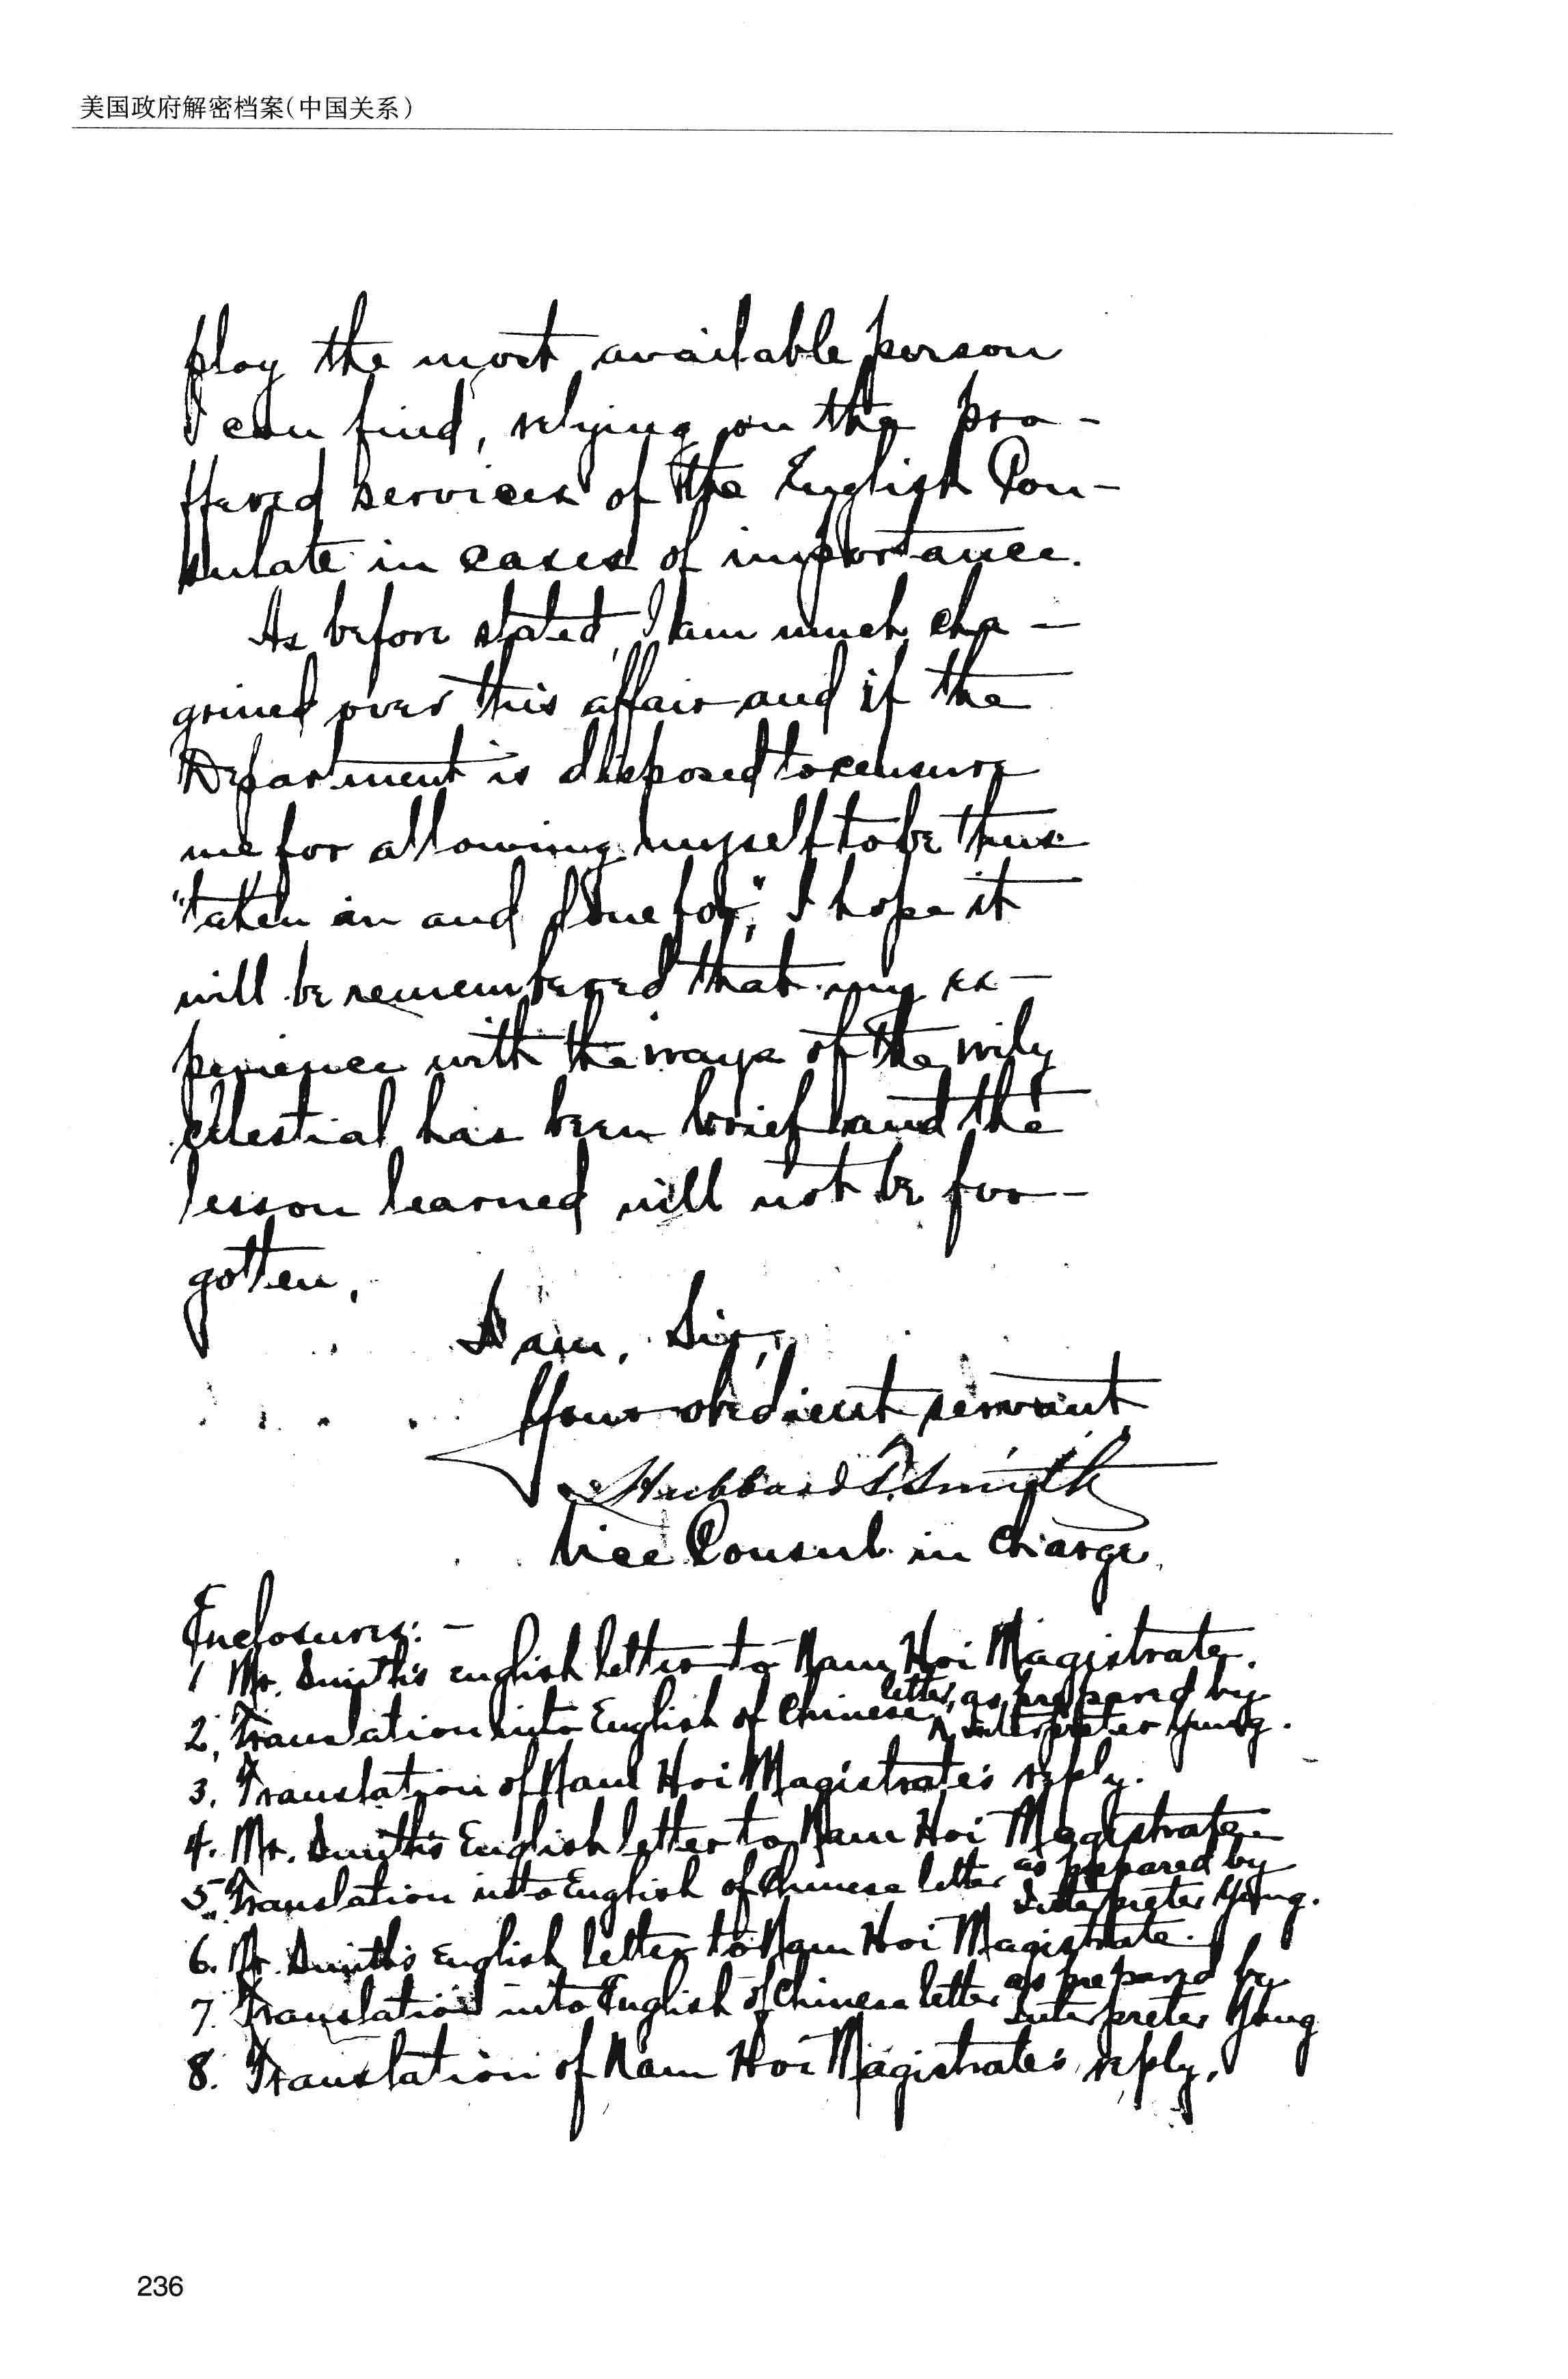 美国政府解密档案(中国关系)
ploy the most available person
I can find, relying on the pro-
ffered services of the English Con-
sulate in cases of importance.
As before stated, I am much cha-
grined over this affair and if the
Department is disposed to censure
me for allowing myself to be thus
"taken in and done for," I hope it
will be remembered that my ex-
perience with the ways of the wily
celestial has been brief and the
lesson learned will not be for-
gotten.
I am, Sir,
Your obedient servant
Hubbard T. Smith
Vice Consul in charge.
Enclosures:-
1 Mr. Smith's English letter to Nam Hoi Magistrate.
2. Translation into English of Chinese letter, as prepared by
Interpreter Yung.
3. Translation of Nam Hoi Magistrate's reply.
4. Mr. Smith's English letter to Nam Hoi Magistrate
5. Translation into English of Chinese letter as prepared by
Interpreter Yung.
6. Mr. Smith's English letter to Nam Hoi Magistrate.
7. Translation into English of Chinese letter as prepared by
Interpreter Yung
8. Translation of Nam Hoi Magistrate's reply.
236